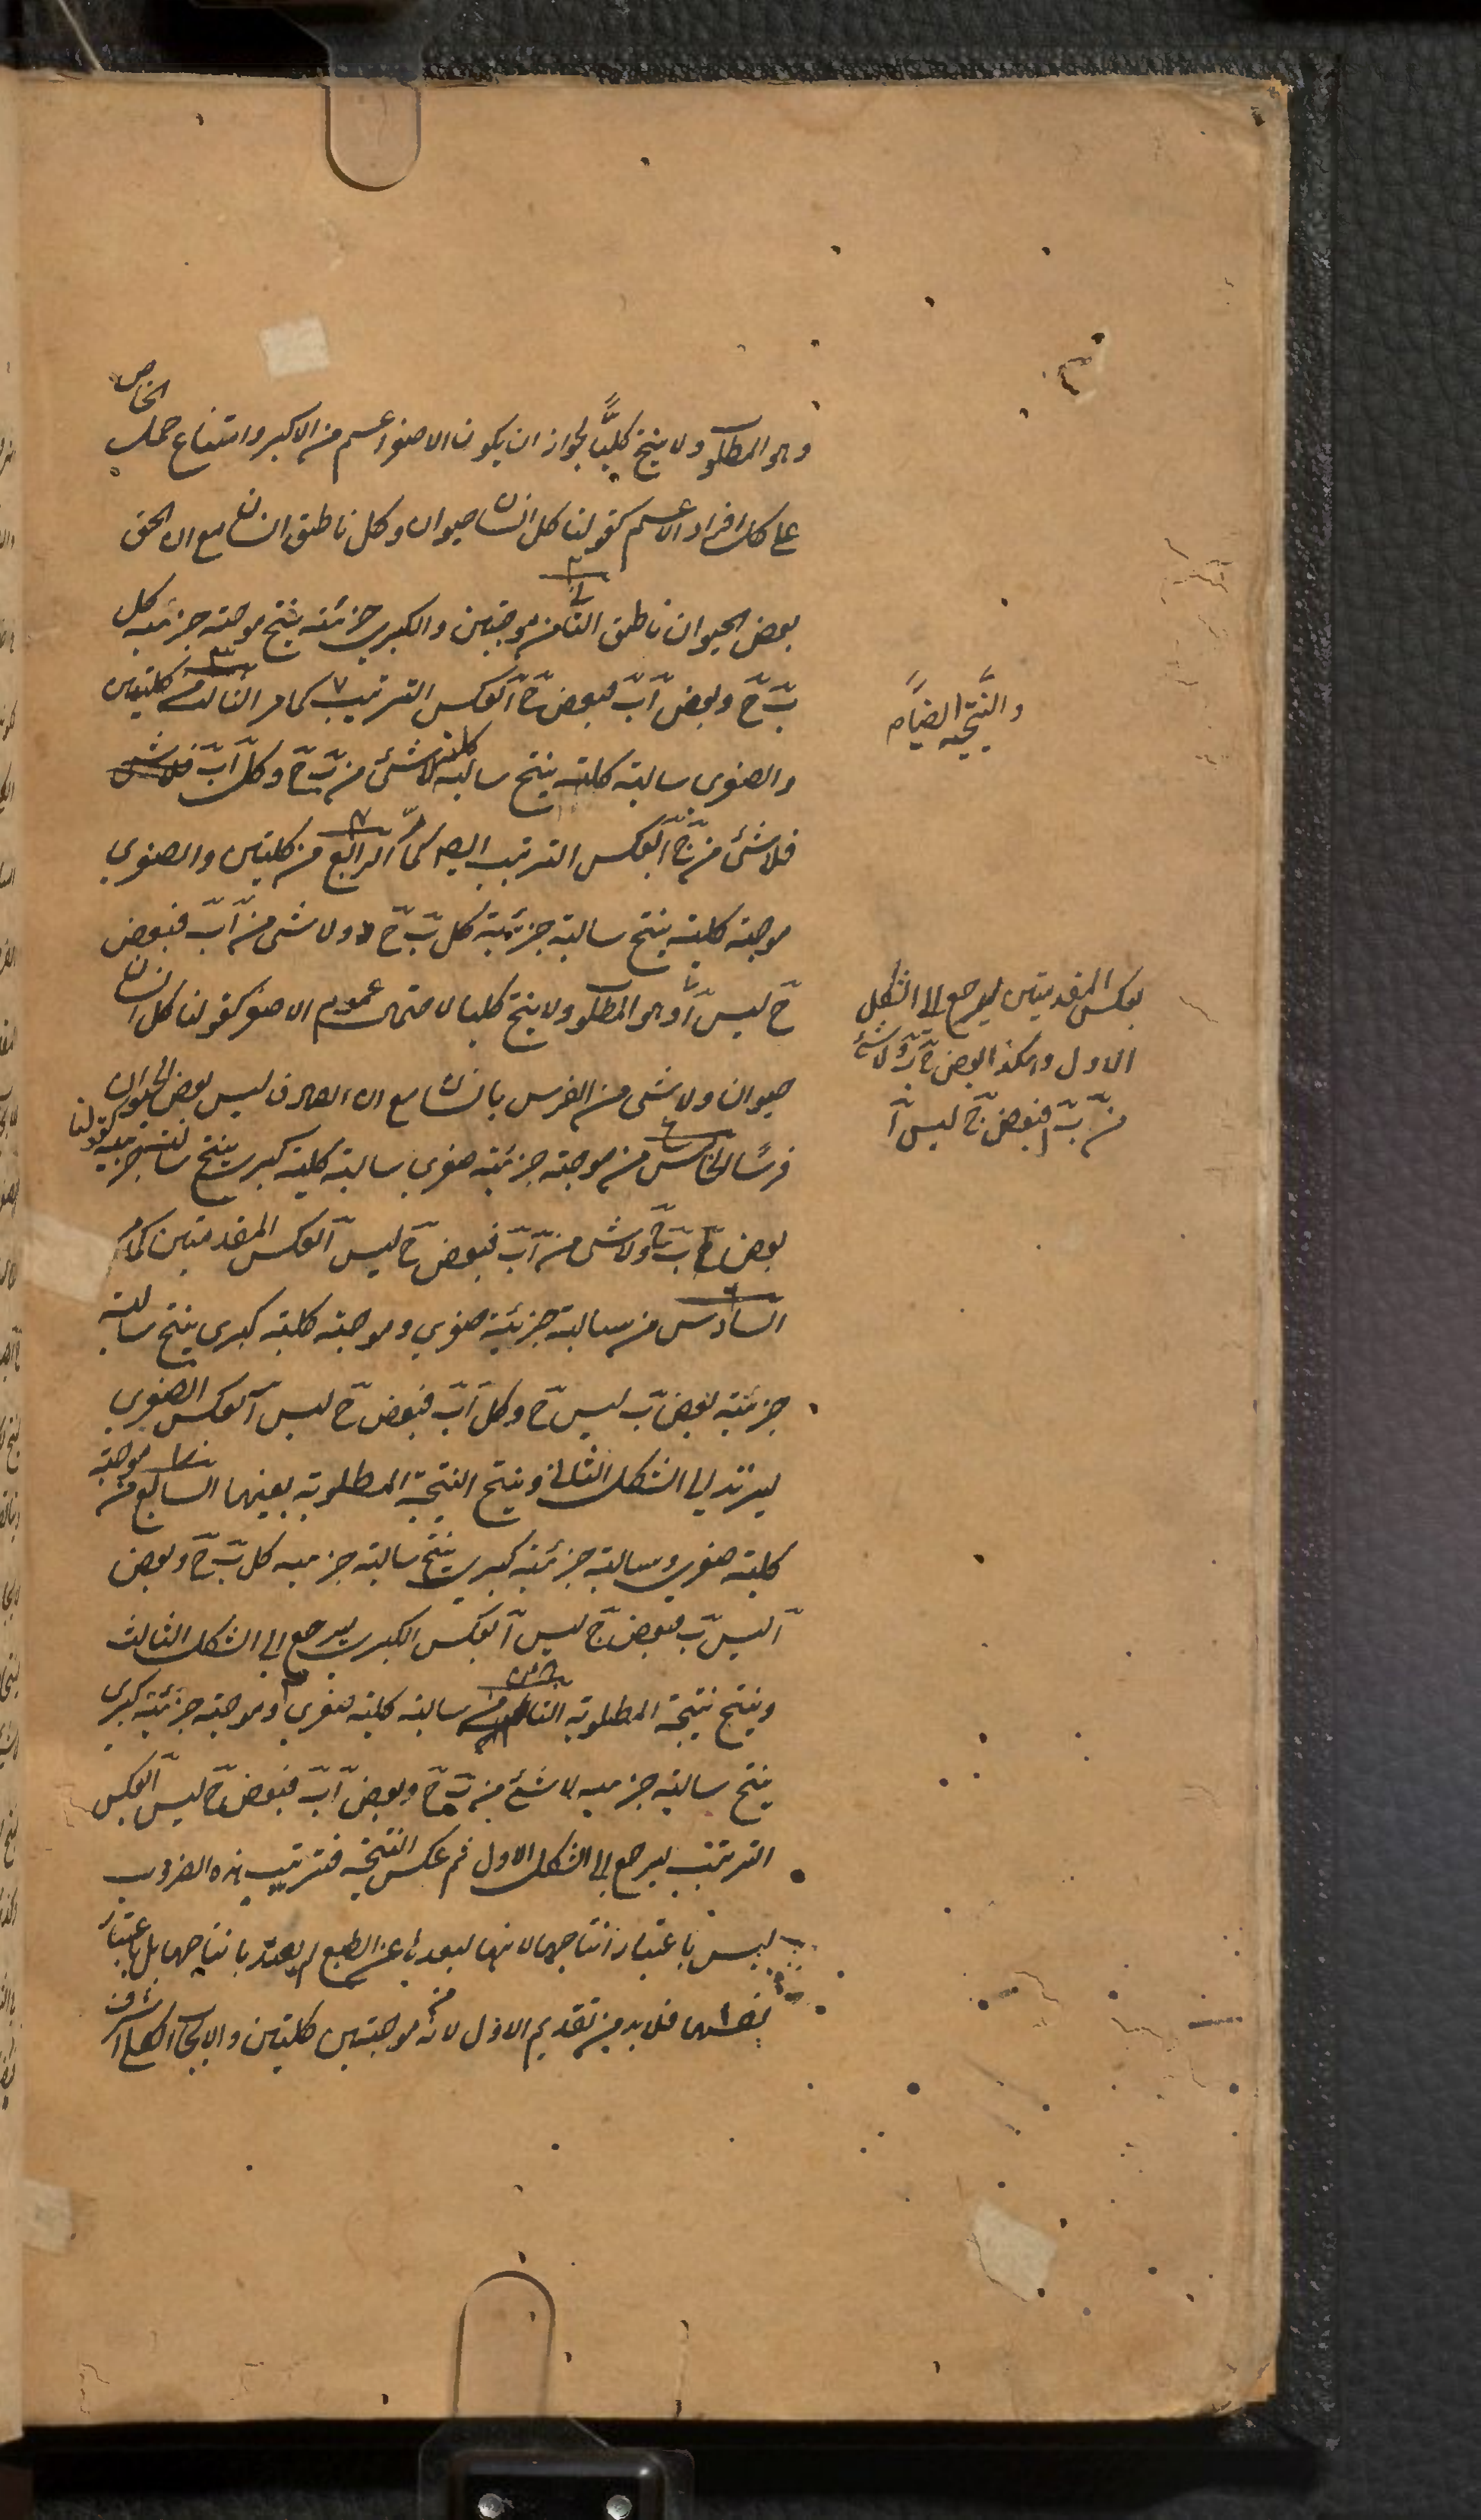 وهو المطلوب ولا ينتج كليًّا لجواز ان يكون الاصغر اعم من الاكبر وامتناع حمل الخاص
على كل افراد الاعم كقولنا كل انسان حيوان وكل ناطق انسان مع ان الحق
بعض الحيوان ناطق الثانى من موجبتين والكبرى جزئية ينتج موجبة جزئية كل
بَ جَ وبعض اَ بَ فبعض جَ اَ بعكس الترتيب كما مر الثالث من كليتين
والصغرى سالبة كلية ينتج سالبة كلية لا شئ من بَ جَ وكل اَ بَ فلا شئ
فلا شئ من جَ اَ بعكس الترتيب ايضا كما مر الرابع من كليتين والصغرى
موجبة كلية ينتج سالبة جزئية كل بَ جَ ولا شئ من اَ بَ فبعض
جَ ليس اَ وهو المطلوب ولا ينتج كليا لاحتمال عموم الاصغر كقولنا كل انسان
حيوان ولا شئ من الفرس بانسان مع ان الصادق ليس بعض الحيوان
فرسًا الخامس من موجبة جزئية صغرى سالبة كلية كبرى ينتج سالبة جزئية كقولنا
بعض بَ جَ ولا شئ من اَ بَ فبعض جَ ليس اَ بعكس المقدمتين كما مر
السادس من سالبة جزئية صغرى وموجبة كلية كبرى ينتج سالبة
جزئية بعض بَ ليس جَ وكل اَ بَ فبعض جَ ليس اَ بعكس الصغرى
ليرتد الى الشكل الثانى وينتج النتيجة المطلوبة بعينها السابع من موجبة
كلية صغرى وسالبة جزئية كبرى ينتج سالبة جزئية كل بَ جَ وبعض
اَ ليس بَ فبعض جَ ليس اَ بعكس الكبرى ليرجع الى الشكل الثالث
وينتج نتيجة المطلوبة الثامن من سالبة كلية صغرى وموجبة جزئية كبرى
ينتج سالبة جزئية لا شئ من بَ جَ وبعض اَ بَ فبعض جَ ليس اَ بعكس
الترتيب ليرجع الى الشكل الاول ثم عكس النتيجة فترتيب هذه الضروب
ليس باعتبار انتاجها لانها لبعدها عن الطبع لم يعتد بانتاجها بل باعتبار
انفسها فلا بد من تقديم الاول لانه من موجبتين كليتين والايجاب الكلى اشرف
والنتيجة ايضًا م
بعكس المقدمتين ليرجع الى الشكل
الاول وهكذا بعض جَ بَ ولا شئ
من بَ اَ فبعض جَ ليس اَ